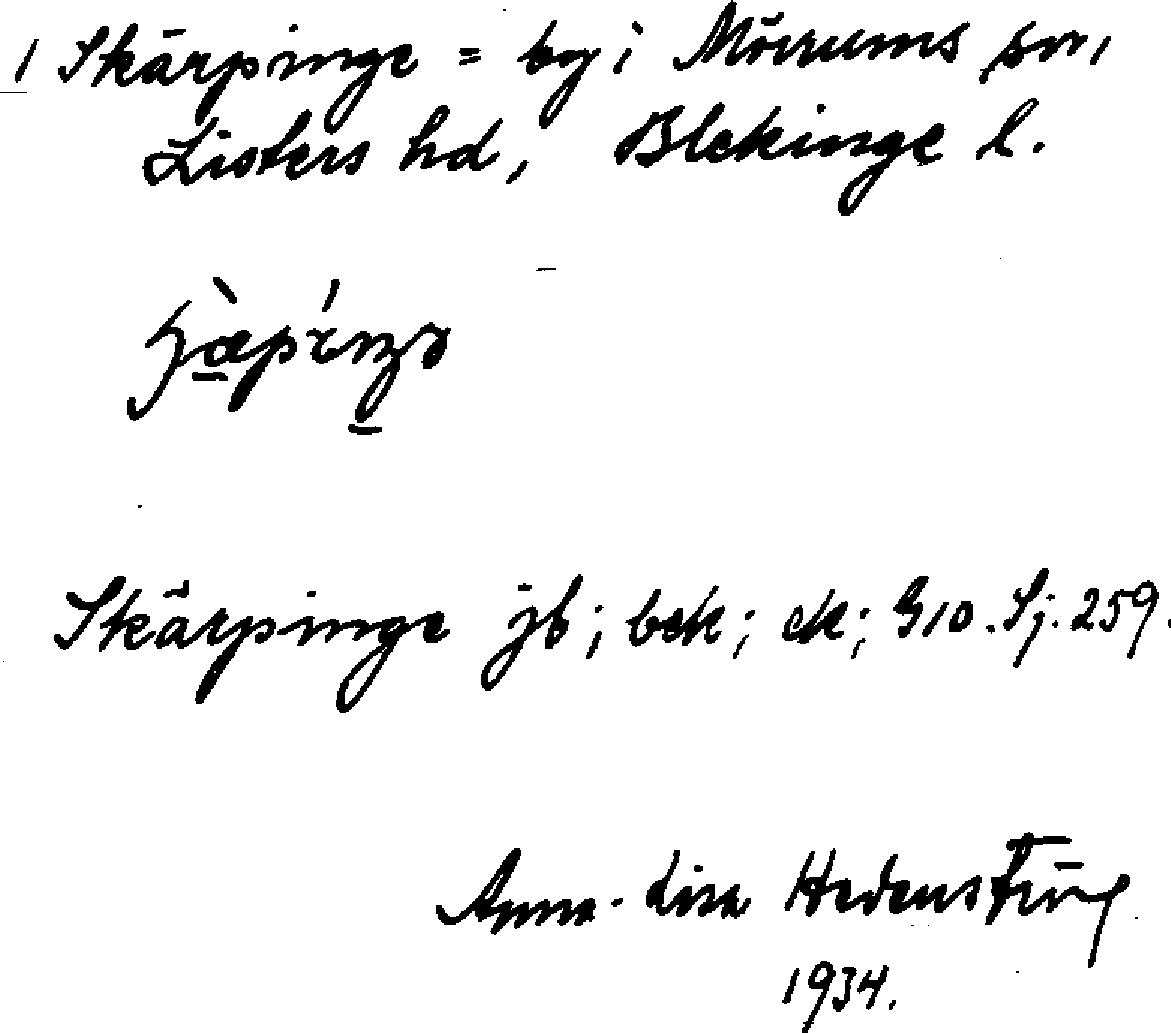 1 Skärpinge = by i Mörrums sn,
Listers hd, Blekinge l.
Skärpinge jb; bek; ek; G10. Sj. 259.
Anna-Lisa Hedenstierna
1934.